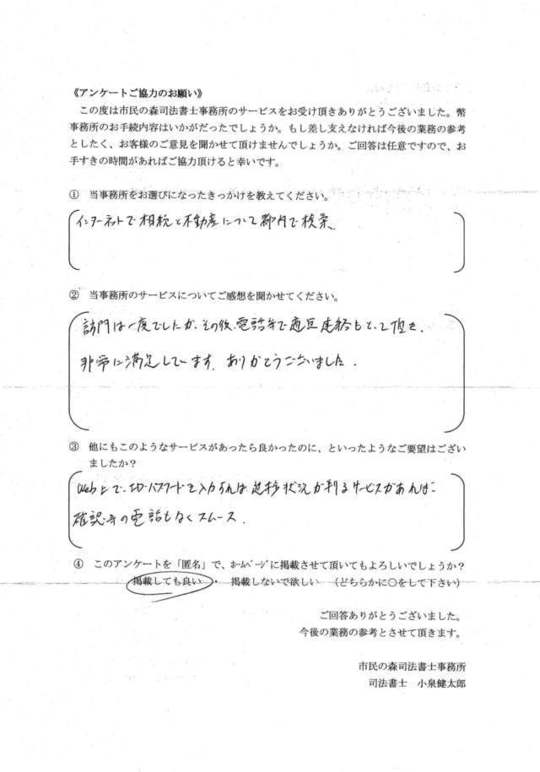 《アンケートご協力のお願い》
この度は市民の森司法書士事務所のサービスをお受け頂きありがとうございました。幣
事務所のお手続内容はいかがだったでしょうか。もし差し支えなければ今後の業務の参考
としたく、お客様のご意見を聞かせて頂けませんでしょうか。ご回答は任意ですので、お
手すきの時間があればご協力頂けると幸いです。
① 当事務所をお選びになったきっかけを教えてください。
インターネットで相続と不動産について都内で検索、
② 当事務所のサービスについてご感想を聞かせてください。
訪問は一度でしたが、その後、電話等で適宜連絡もとって頂き、
非常に満足しています。ありがとうございました。
③ 他にもこのようなサービスがあったら良かったのに、といったようなご要望はござい
ましたか？
Web上で、ID・パスワードを入力すれば進捗状況が判るサービスがあれば、
確認等の電話もなくスムーズ。
④ このアンケートを「匿名」で、ホームページに掲載させて頂いてもよろしいでしょうか？
掲載しても良い ・ 掲載しないで欲しい （どちらかに○をして下さい）
ご回答ありがとうございました。
今後の業務の参考とさせて頂きます。
市民の森司法書士事務所
司法書士 小泉健太郎